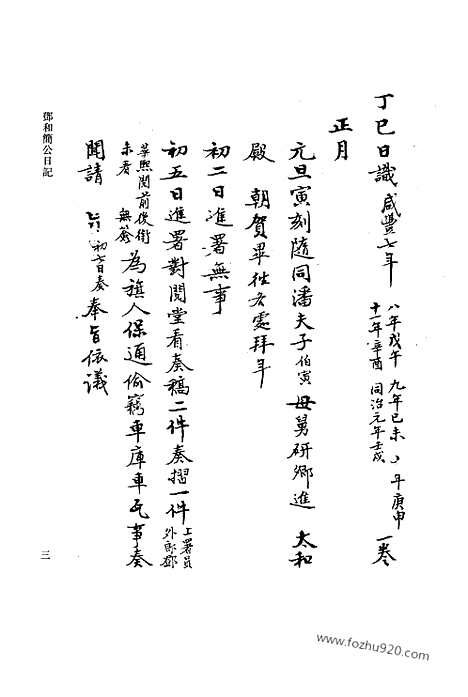 丁巳日識 咸豐七年 八年戊午 九年己未 十年庚申 十一年辛酉 同治元年壬戌 一卷
正月
元旦寅刻隨同潘夫子伯寅母舅研鄉進 太和
殿 朝賀畢往各處拜年
初二日進署無事
初五日進署對閱堂看奏稿二件奏摺一件 上署員外郎鄧
華熙閱前後銜未看 無簽 為旗人保通偷竊車庫車瓦事奏
聞請 旨 初六日奏 奉旨依議
鄧和簡公日記
三
www.fozhu920.com